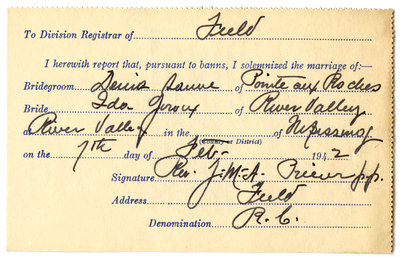 To Division Registrar of Field
I herewith report that, pursuant to banns, I solemnized the marriage of:—
Bridegroom Denis Sauvé of Pointe aux Roches
Bride Ida Giroux of River Valley
at River Valley in the (County or District) of Nipissing
on the 7th day of Feb. 1942
Signature Rev. J.-M.-A. Prieur p.p.
Address Field
Denomination R. C.